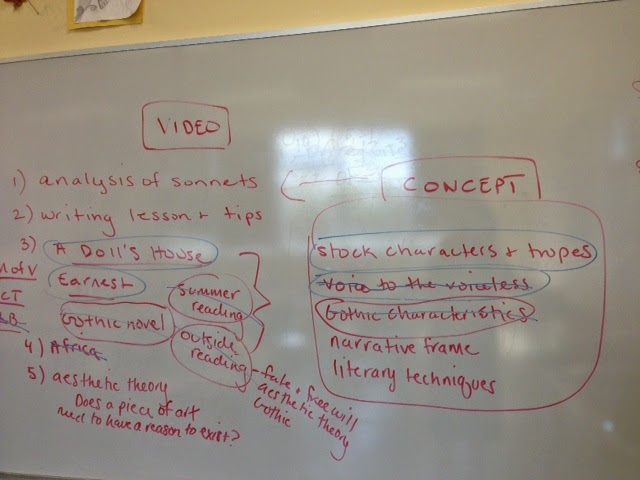 VIDEO
1) analysis of sonnets
2) writing lesson + tips
3) A Doll's House
Earnest
Gothic novel
summer
reading
outside
reading
4) Africa
5) aesthetic theory
Does a piece of art
need to have a reason to exist?
- fate + free will
aesthetic theory
Gothic
CONCEPT
stock characters + tropes
voice to the voiceless
Gothic characteristics
narrative frame
literary techniques